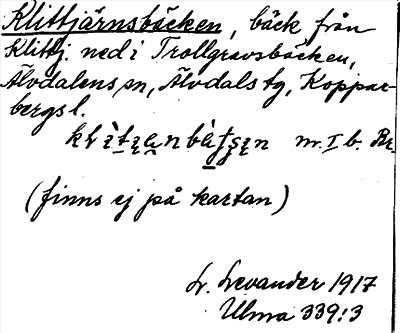 Klittjärnsbäcken, bäck från
Klittj. ned i Trollgravsbäcken,
Älvdalens sn, Älvdals tg, Koppar-
bergs l.
m. I b. Br.
(finns ej på kartan)
L. Levander 1917
Ulma 339:3